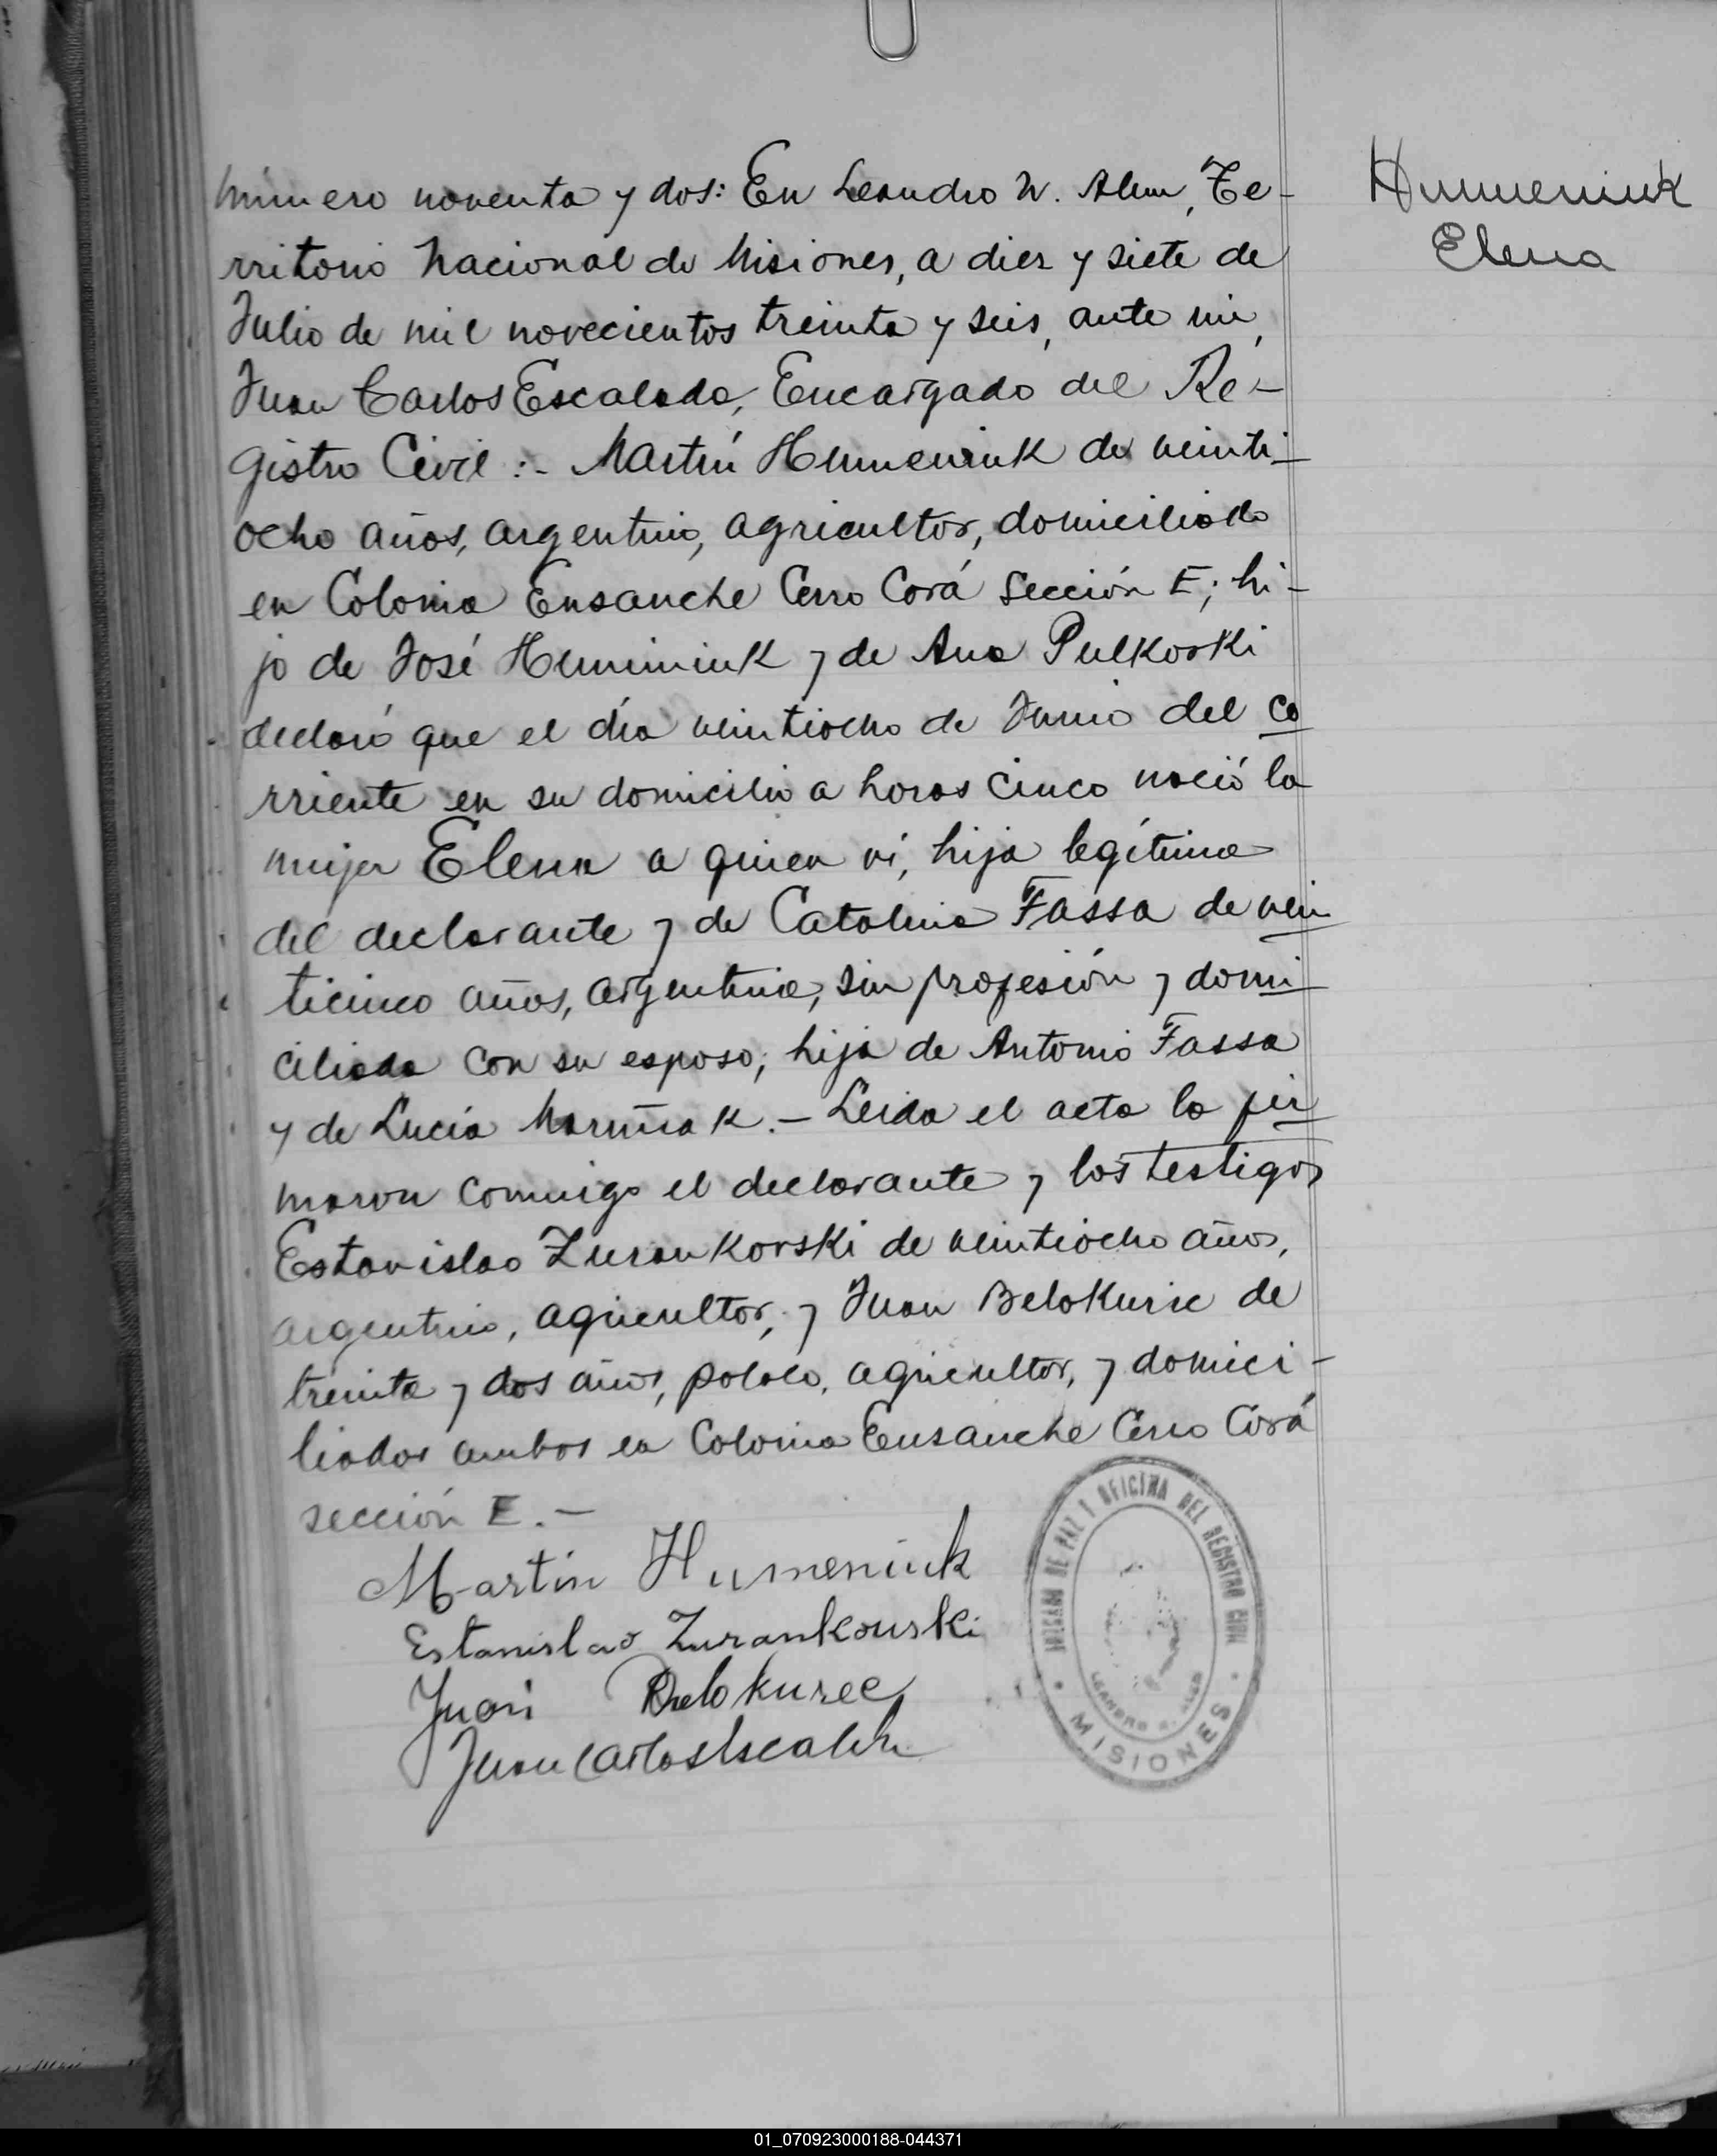 Humeniuk
Elena
Número noventa y dos: En Leandro N. Alem, Te-
rritorio Nacional de Misiones, a diez y siete de
Julio de mil novecientos treinta y seis, ante mi,
Juan Carlos Escalada, Encargado del Re-
gistro Civil :- Martín Humeniuk de veinti-
ocho años, argentino, agricultor, domiciliado
en Colonia Ensanche Cerro Corá Sección E; hi-
jo de José Humeniuk y de Ana Pulkoski
declaró que el día veintiocho de Junio del co
rriente en su domicilio a horas cinco nació la
mujer Elena a quien ví, hija legítima
del declarante y de Catalina Fassa de vein
ticinco años, argentina, sin profesión y domi
ciliada con su esposo; hija de Antonio Fassa
y de Lucía Maruñak.- Leida el acta la fir
maron conmigo el declarante y los testigos
Estanislao Zurankovski de veintiocho años,
argentino, agricultor, y Juan Belokuric de
treinta y dos años, polaco, agricultor, y domici-
liados ambos en Colonia Ensanche Cerro Corá
sección E.-
Martin Humeniuk
Estanislao Zurankouski
Juan Belokurec
Juan Carlos Escalada
JUZGADO DE PAZ Y OFICINA DEL REGISTRO CIVIL
LEANDRO N. ALEM
MISIONES
01_070923000188-044371